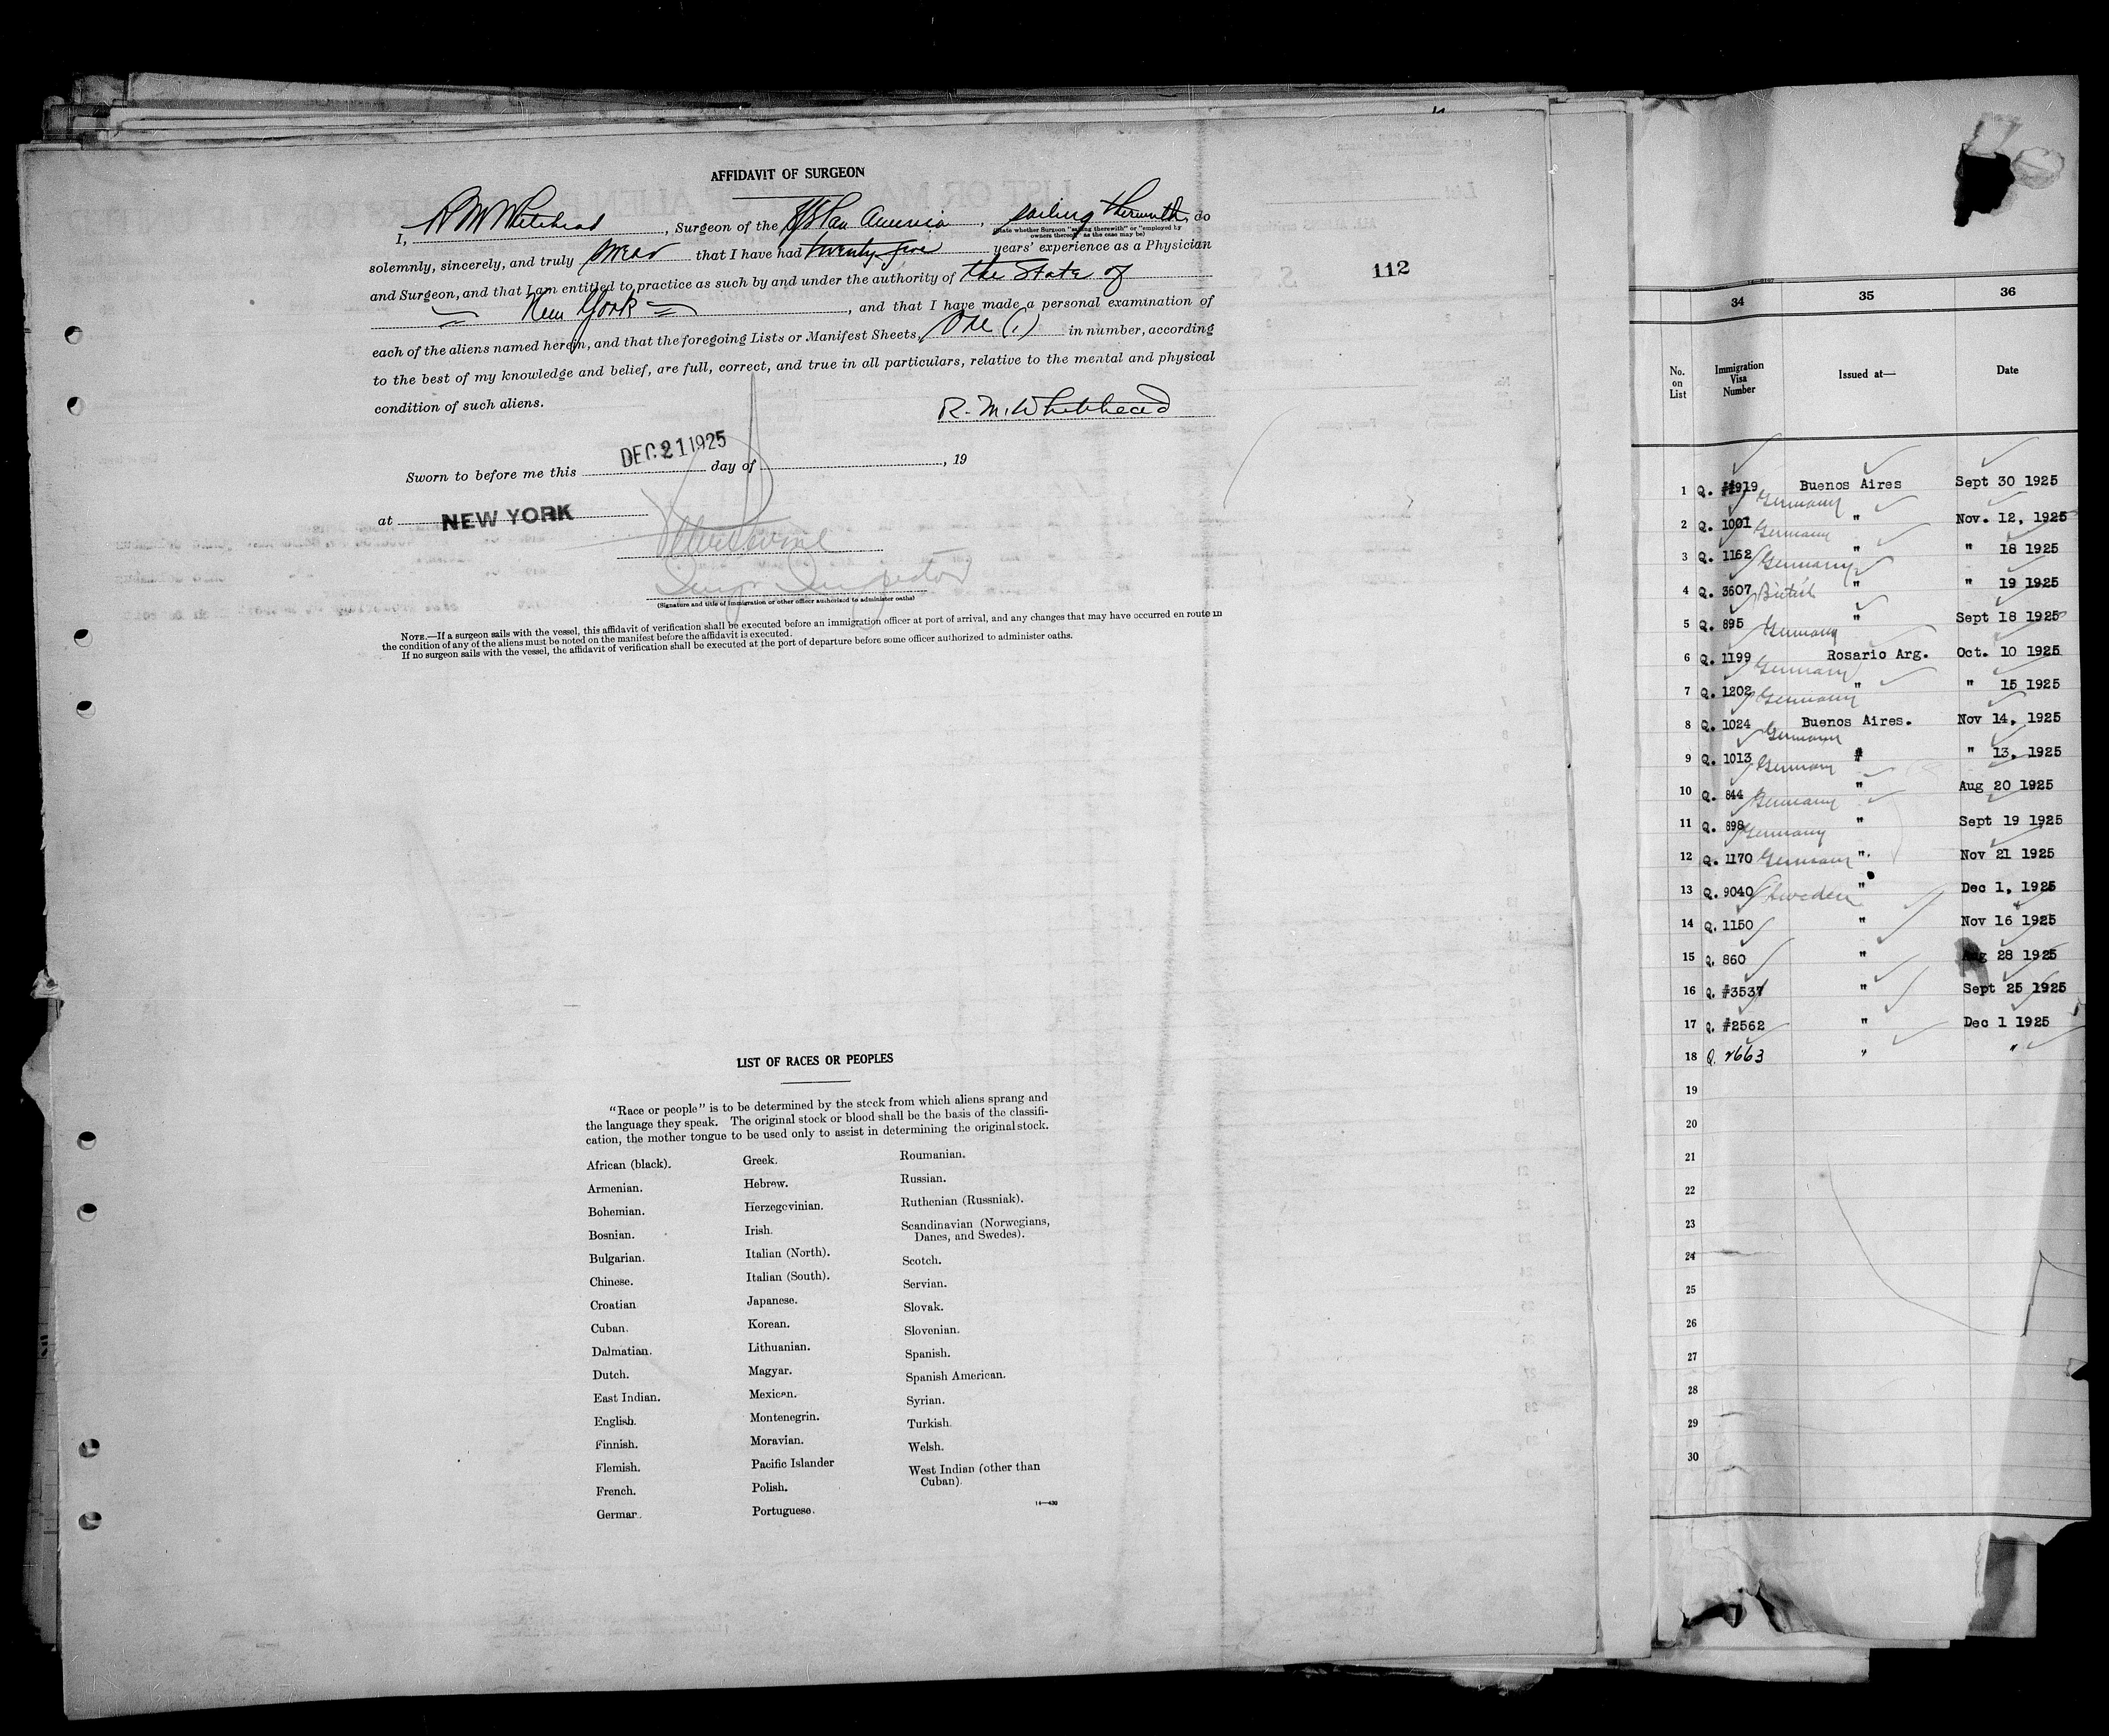 AFFIDAVIT OF SURGEON
I, R M Whitehead, Surgeon of the SS Pan America, sailing therewith, do
(State whether Surgeon "sailing therewith" or "employed by owners thereof," as the case may be)
solemnly, sincerely, and truly swear that I have had twenty five years' experience as a Physician
and Surgeon, and that I am entitled to practice as such by and under the authority of the State of
New York, and that I have made a personal examination of
each of the aliens named herein, and that the foregoing Lists or Manifest Sheets, One (1) in number, according
to the best of my knowledge and belief, are full, correct, and true in all particulars, relative to the mental and physical
condition of such aliens.
R. M. Whitehead
Sworn to before me this DEC 21 1925 day of , 19
at NEW YORK
Inspector
(Signature and title of immigration or other officer authorized to administer oaths)
NOTE.—If a surgeon sails with the vessel, this affidavit of verification shall be executed before an immigration officer at port of arrival, and any changes that may have occurred en route in
the condition of any of the aliens must be noted on the manifest before the affidavit is executed.
If no surgeon sails with the vessel, the affidavit of verification shall be executed at the port of departure before some officer authorized to administer oaths.
LIST OF RACES OR PEOPLES
"Race or people" is to be determined by the stock from which aliens sprang and
the language they speak. The original stock or blood shall be the basis of the classifi-
cation, the mother tongue to be used only to assist in determining the original stock.
African (black).
Armenian.
Bohemian.
Bosnian.
Bulgarian.
Chinese.
Croatian
Cuban.
Dalmatian.
Dutch.
East Indian.
English.
Finnish.
Flemish.
French.
German.
Greek.
Hebrew.
Herzegovinian.
Irish.
Italian (North).
Italian (South).
Japanese.
Korean.
Lithuanian.
Magyar.
Mexican.
Montenegrin.
Moravian.
Pacific Islander
Polish.
Portuguese.
Roumanian.
Russian.
Ruthenian (Russniak).
Scandinavian (Norwegians,
Danes, and Swedes).
Scotch.
Servian.
Slovak.
Slovenian.
Spanish.
Spanish American.
Syrian.
Turkish.
Welsh.
West Indian (other than
Cuban).
14—430
112
34 35 36
No. on List Immigration Visa Number Issued at— Date
1 Q. #1919 Germany Buenos Aires Sept 30 1925
2 Q. 1001 Germany " Nov. 12, 1925
3 Q. 1162 Germany " " 18 1925
4 Q. 3607 British " " 19 1925
5 Q. 895 Germany " Sept 18 1925
6 Q. 1199 Germany Rosario Arg. Oct. 10 1925
7 Q. 1202 Germany " " 15 1925
8 Q. 1024 Germany Buenos Aires. Nov 14, 1925
9 Q. 1013 Germany # " 13, 1925
10 Q. 844 Germany " Aug 20 1925
11 Q. 898 Germany " Sept 19 1925
12 Q. 1170 Germany " Nov 21 1925
13 Q. 9040 Sweden " Dec 1, 1925
14 Q. 1150 " Nov 16 1925
15 Q. 860 " Aug 28 1925
16 Q. #3537 " Sept 25 1925
17 Q. #2562 " Dec 1 1925
18 Q. 2663 " "
19
20
21
22
23
24
25
26
27
28
29
30